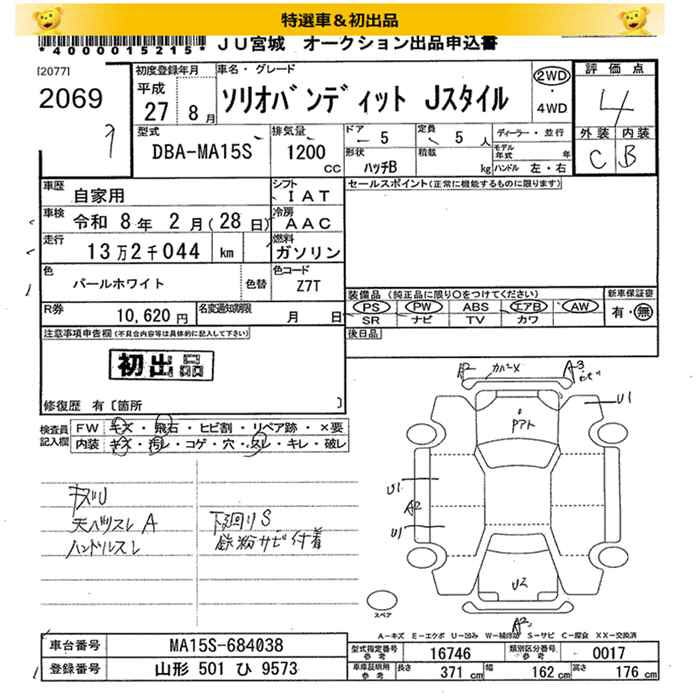 特選車&初出品
*4000015215*
JU宮城 オークション出品申込書
[2077]
2069
初度登録年月
平成
27 8月
車名・グレード
ソリオバンディット Jスタイル
2WD
・
4WD
評価点
4
外装 内装
C B
型式
DBA-MA15S
排気量
1200
CC
ドア
5
形状
ハッチB
定員
5人
積載
kg
ディーラー・並行
モデル年式 年
ハンドル 左・右
車歴
自家用
シフト
IAT
セールスポイント(正常に機能するものに限ります)
車検
令和 8年 2月(28日)
冷房
AAC
走行
13万2千044 km
燃料
ガソリン
色
パールホワイト
色替
色コード
Z7T
装備品 (純正品に限り○をつけてください)
PS PW ABS エアB AW
SR ナビ TV カワ
新車保証書
有・無
R券
10,620円
名変通知期限
月 日
後日品
注意事項申告欄(不具合内容等は具体的に記入して下さい)
初出品
修復歴 有〔箇所 〕
検査員記入欄
FW キズ・飛石・ヒビ割・リペア跡・×要
内装 キズ・汚レ・コゲ・穴・スレ・キレ・破レ
天バリスレ A
ハンドルスレ
下回りS
鉄粉サビ付着
A2
A-3
U1
Pアト
U1
A2
U1
U2
A2
スペア
A-キズ E-エクボ U-凹み W-補修跡 S-サビ C-腐食 XX-交換済
車台番号
MA15S-684038
登録番号
山形 501 ひ 9573
型式指定番号
参考
16746
類別区分番号
参考
0017
車庫証明用
参考
長さ
371 cm
幅
162 cm
高さ
176 cm